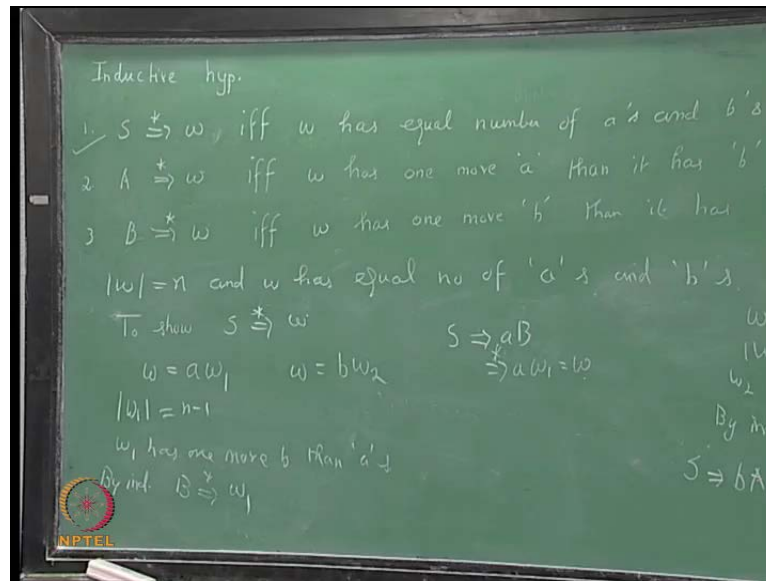 Inductive hyp.
1. S ⇒* w, iff w has equal number of a's and b's
2 A ⇒* w iff w has one more 'a' than it has 'b'
3 B ⇒* w iff w has one more 'b' than it has
|w| = n and w has equal no of 'a's and 'b's.
To show S ⇒* w
w = aw₁ w = bw₂
|w₁| = n-1
w₁ has one more b than 'a's
By ind. B ⇒* w₁
S ⇒ aB
⇒* aw₁ = w
w
w₂
By in
S ⇒ bA
NPTEL